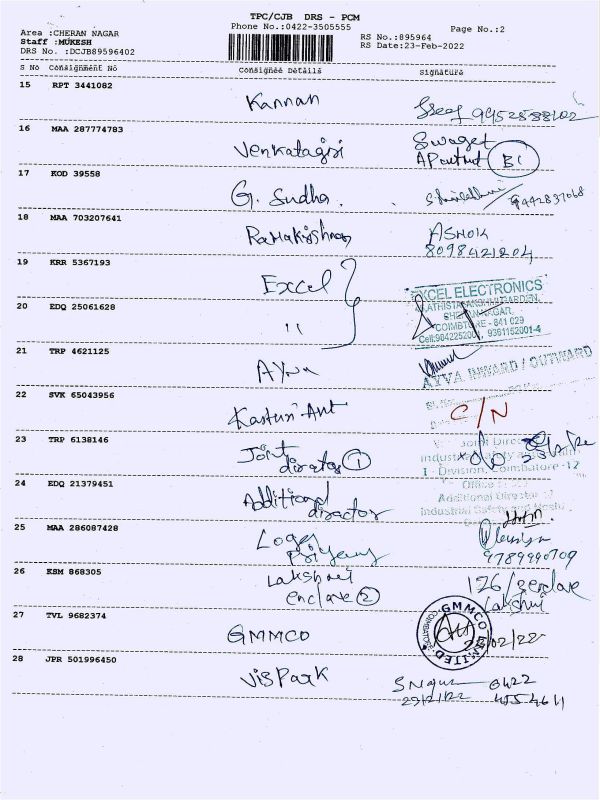 TPC/CJB DRS - PCM
Phone No.:0422-3505555
Page No.:2
Area :CHERAN NAGAR
Staff :MUKESH
DRS No. :DCJB89596402
RS No.:895964
RS Date:23-Feb-2022
S No Consignment No Consignee Details Signature
15 RPT 3441082 Kannan 9952588102
16 MAA 287774783 Venkatagiri
B1
17 KOD 39558 G. Sudha. 9442837068
18 MAA 703207641 Ramakrishnan ASHOK
8098421204
19 KRR 5367193 Excel
EXCEL ELECTRONICS
20 EDQ 25061628 "
COIMBTORE - 641 029
Cell:9842252001, 9361152001-4
21 TRP 4621125 Ayva
AYVA INWARD / OUTWARD
22 SVK 65043956 Kasturi Ant C/N
23 TRP 6138146 Joint director 1
Joint Director
Industrial Safety and Health
I - Division, Coimbatore -12
24 EDQ 21379451 Additional director
Office
Additional Director
Industrial Safety and Health
25 MAA 286087428 Loges priyeny
9789990709
26 KSM 868305 Lakshmi enclave 2 126/enclave
Lakshmi
27 TVL 9682374 GMMCO
GMMCO LIMITED
COIMBATORE
/02/22
28 JPR 501996450 Vispark 0422
4554611